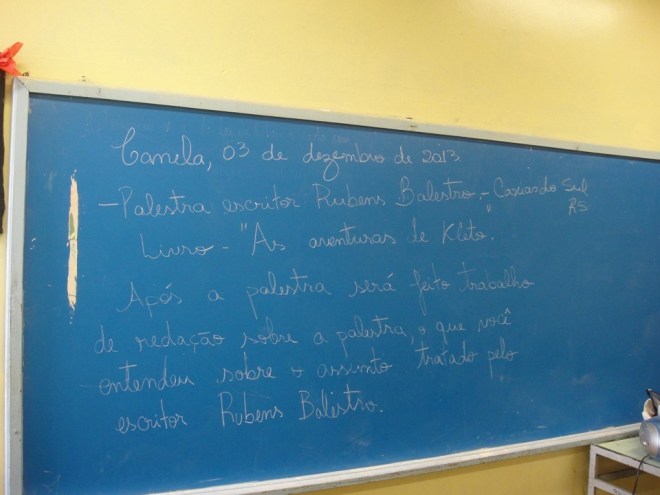 Canela, 03 de dezembro de 2013
- Palestra escritor Rubens Balestro - Caxias do Sul RS
Livro - "As aventuras de Kleto.
Após a palestra será feito trabalho
de redação sobre a palestra, o que você
entendeu sobre o assunto tratado pelo
escritor Rubens Balestro.